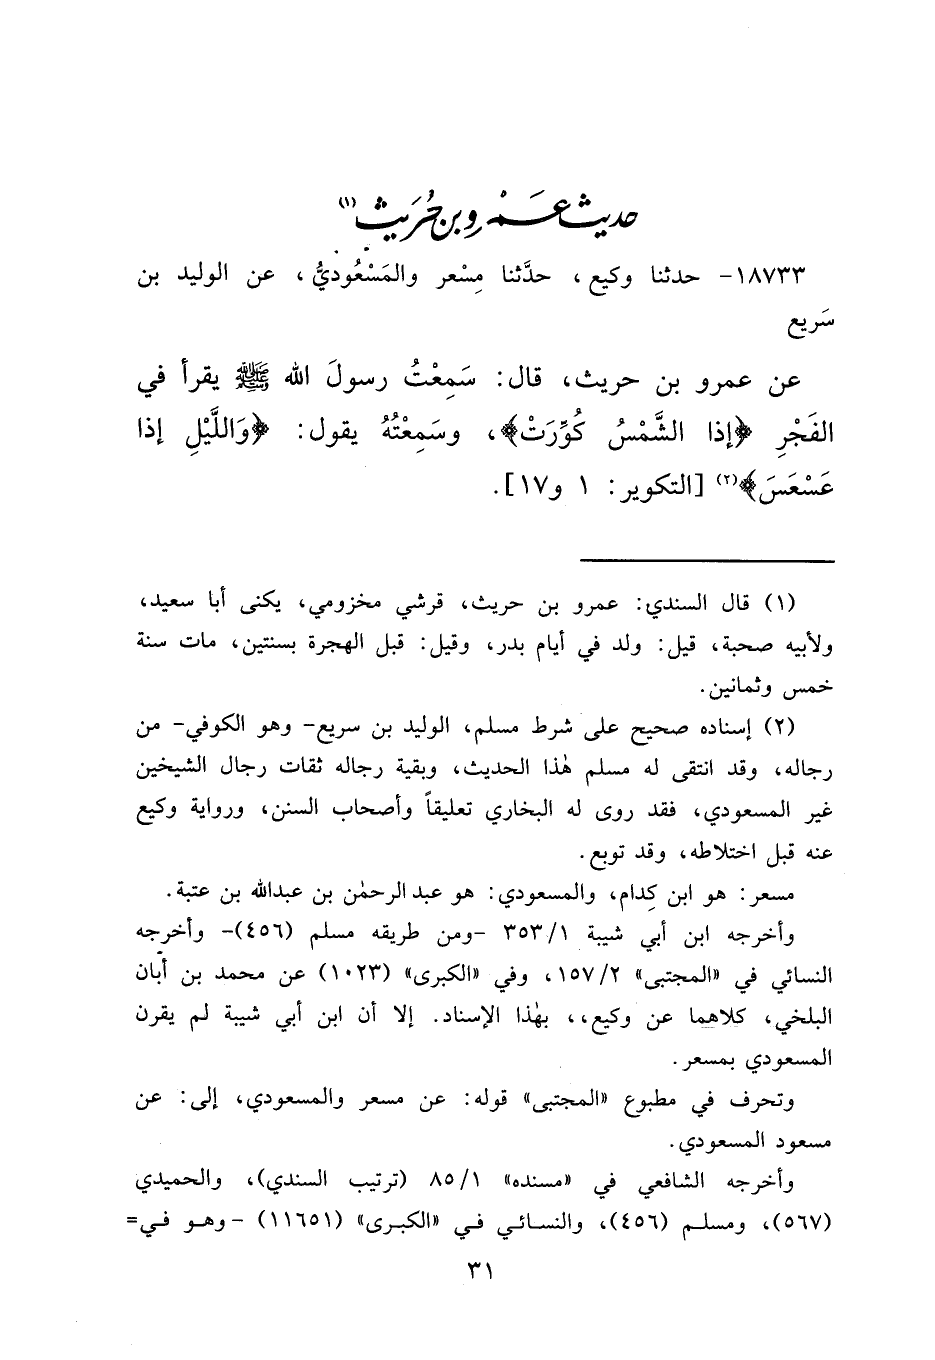 حديث عَمْرو بن حُرَيث (١)
١٨٧٣٣- حدثنا وكيع، حدَّثنا مِسْعر والمَسْعُوديُّ، عن الوليد بن
سَريع
عن عمرو بن حريث، قال: سَمِعْتُ رسولَ الله ﷺ يقرأ في
الفَجْرِ ﴿إذا الشَّمْسُ كُوِّرَتْ﴾، وسَمِعْتُهُ يقول: ﴿وَاللَّيْلِ إذا
عَسْعَسَ﴾(٢) [التكوير: ١ و١٧].
(١) قال السندي: عمرو بن حريث، قرشي مخزومي، يكنى أبا سعيد،
ولأبيه صحبة، قيل: ولد في أيام بدر، وقيل: قبل الهجرة بسنتين، مات سنة
خمس وثمانين.
(٢) إسناده صحيح على شرط مسلم، الوليد بن سريع- وهو الكوفي- من
رجاله، وقد انتقى له مسلم هٰذا الحديث، وبقية رجاله ثقات رجال الشيخين
غير المسعودي، فقد روى له البخاري تعليقاً وأصحاب السنن، ورواية وكيع
عنه قبل اختلاطه، وقد توبع.
مسعر: هو ابن كِدام، والمسعودي: هو عبد الرحمٰن بن عبدالله بن عتبة.
وأخرجه ابن أبي شيبة ٣٥٣/١ -ومن طريقه مسلم (٤٥٦)- وأخرجه
النسائي في «المجتبى» ١٥٧/٢، وفي «الكبرى» (١٠٢٣) عن محمد بن أبان
البلخي، كلاهما عن وكيع،، بهٰذا الإسناد. إلا أن ابن أبي شيبة لم يقرن
المسعودي بمسعر.
وتحرف في مطبوع «المجتبى» قوله: عن مسعر والمسعودي، إلى: عن
مسعود المسعودي.
وأخرجه الشافعي في «مسنده» ٨٥/١ (ترتيب السندي)، والحميدي
(٥٦٧)، ومسلم (٤٥٦)، والنسائي في «الكبرى» (١١٦٥١) -وهو في=
٣١